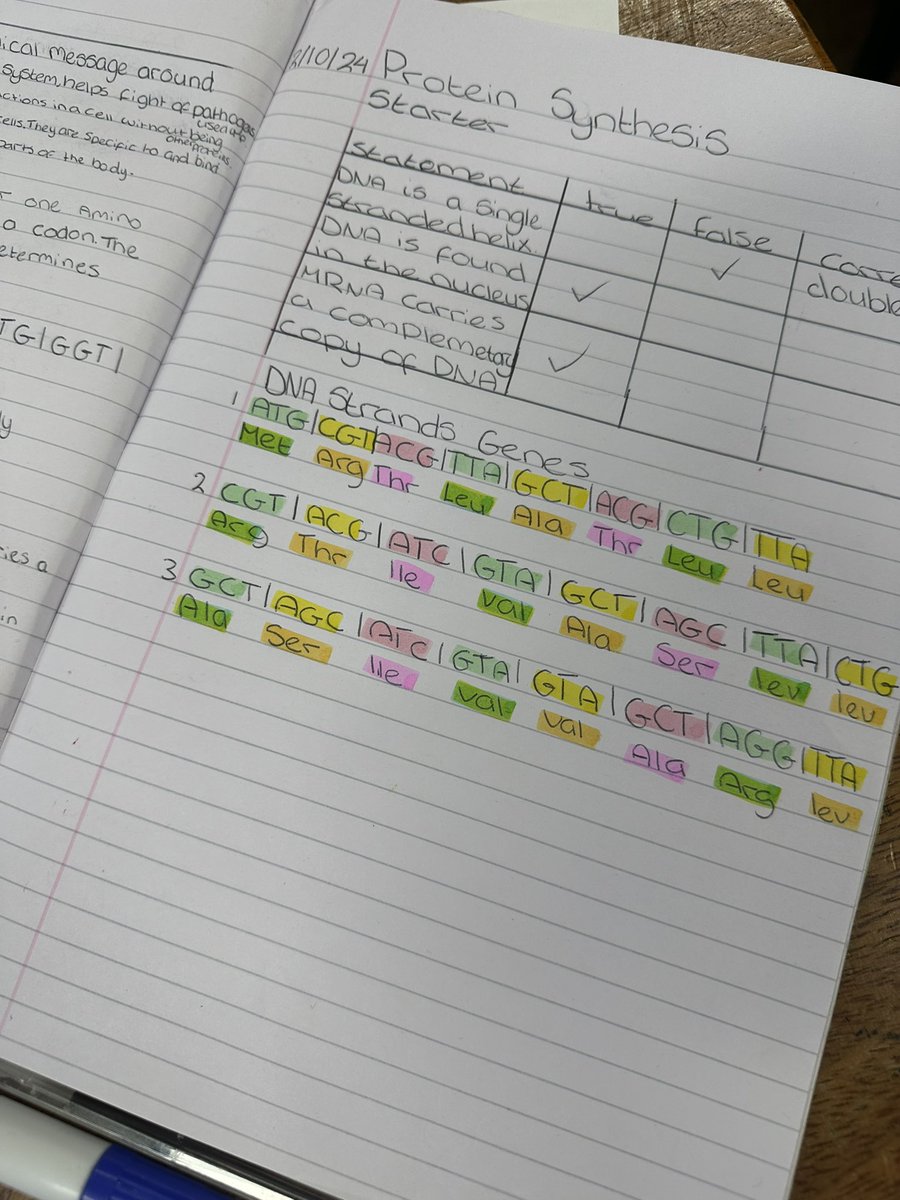 ical message around
System, helps fight of pathogens
used to
ctions in a cell without being
other proteins
ells. They are specific to and bind
parts of the body.
one Amino
a codon. The
etermines
TG|GGT|
ly
ies a
in
/10/24 Protein Synthesis
Starter
Statement true false Corre
DNA is a single
Stranded helix. ✓ double
DNA is found
in the nucleus ✓
MRNA carries
a complemetary
copy of DNA ✓
DNA Strands Genes
1 ATG|CGT|ACG|TTA|GCT|ACG|CTG|TTA
Met Arg Thr Leu Ala Thr Leu Leu
2 CGT|ACG|ATC|GTA|GCT|AGC|TTA|CTG
Arg Thr Ile Val Ala Ser lev lev
3 GCT|AGC|ATC|GTA|GTA|GCT|AGG|TTA
Ala Ser Ile val val Ala Arg lev